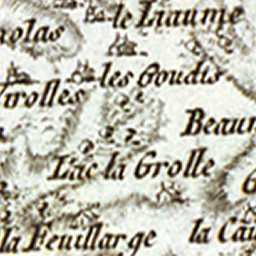 nolas
le Liaume
les Goudis
Trolles
Beaum
Lac la Grolle
la Feuillarge
la Cau